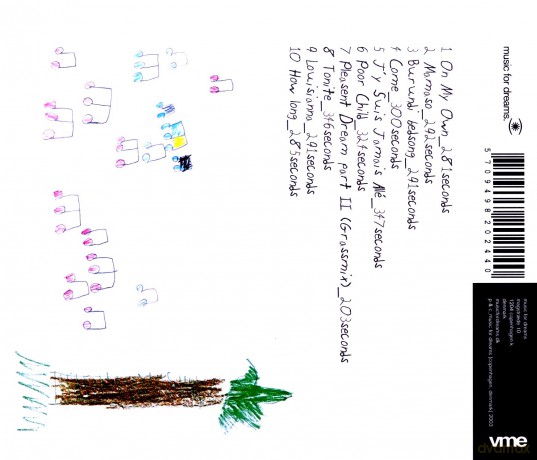 1 On My Own_281seconds
2 Mamasa_242seconds
3 Burundi belsong_241seconds
4 Come_300seconds
5 J'y Suis Jamais Alé_347seconds
6 Poor Child_324seconds
7 Pleasent Dream part II (Grassmix)_203seconds
8 Tonite_346seconds
9 Louisianna_241seconds
10 How long_285seconds
music for dreams.
5 709498 202440
music for dreams
1204 copenhagen k
denmark
musicfordreams.dk
p & c music for dreams (copenhagen, denmark) 2002
vme
dvdmax